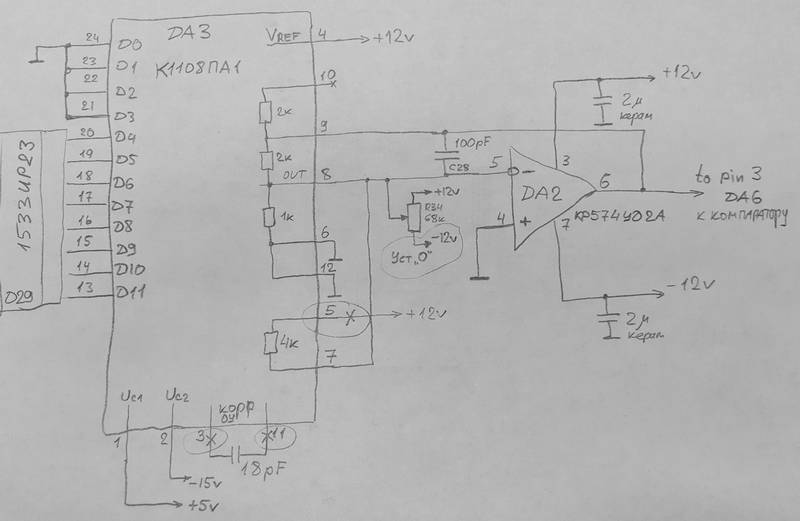 DA3
К1108ПА1
VREF 4 +12v
24 D0
23 D1
22 D2
21 D3
20 D4
19 D5
18 D6
17 D7
16 D8
15 D9
14 D10
13 D11
1533ИР23
D29
10
2к
9
2к
OUT 8
1к
6
12
5
+12v
4к
7
Uc1
Uc2
корр
ОУ
1
2
3
11
18pF
-15v
+5v
100pF
C28
+12v
R34
68к
-12v
Уст„0"
5
4
3
6
7
DA2
КР574УД2А
+12v
2μ
керам
to pin 3
DA6
к компаратору
-12v
2μ
керам